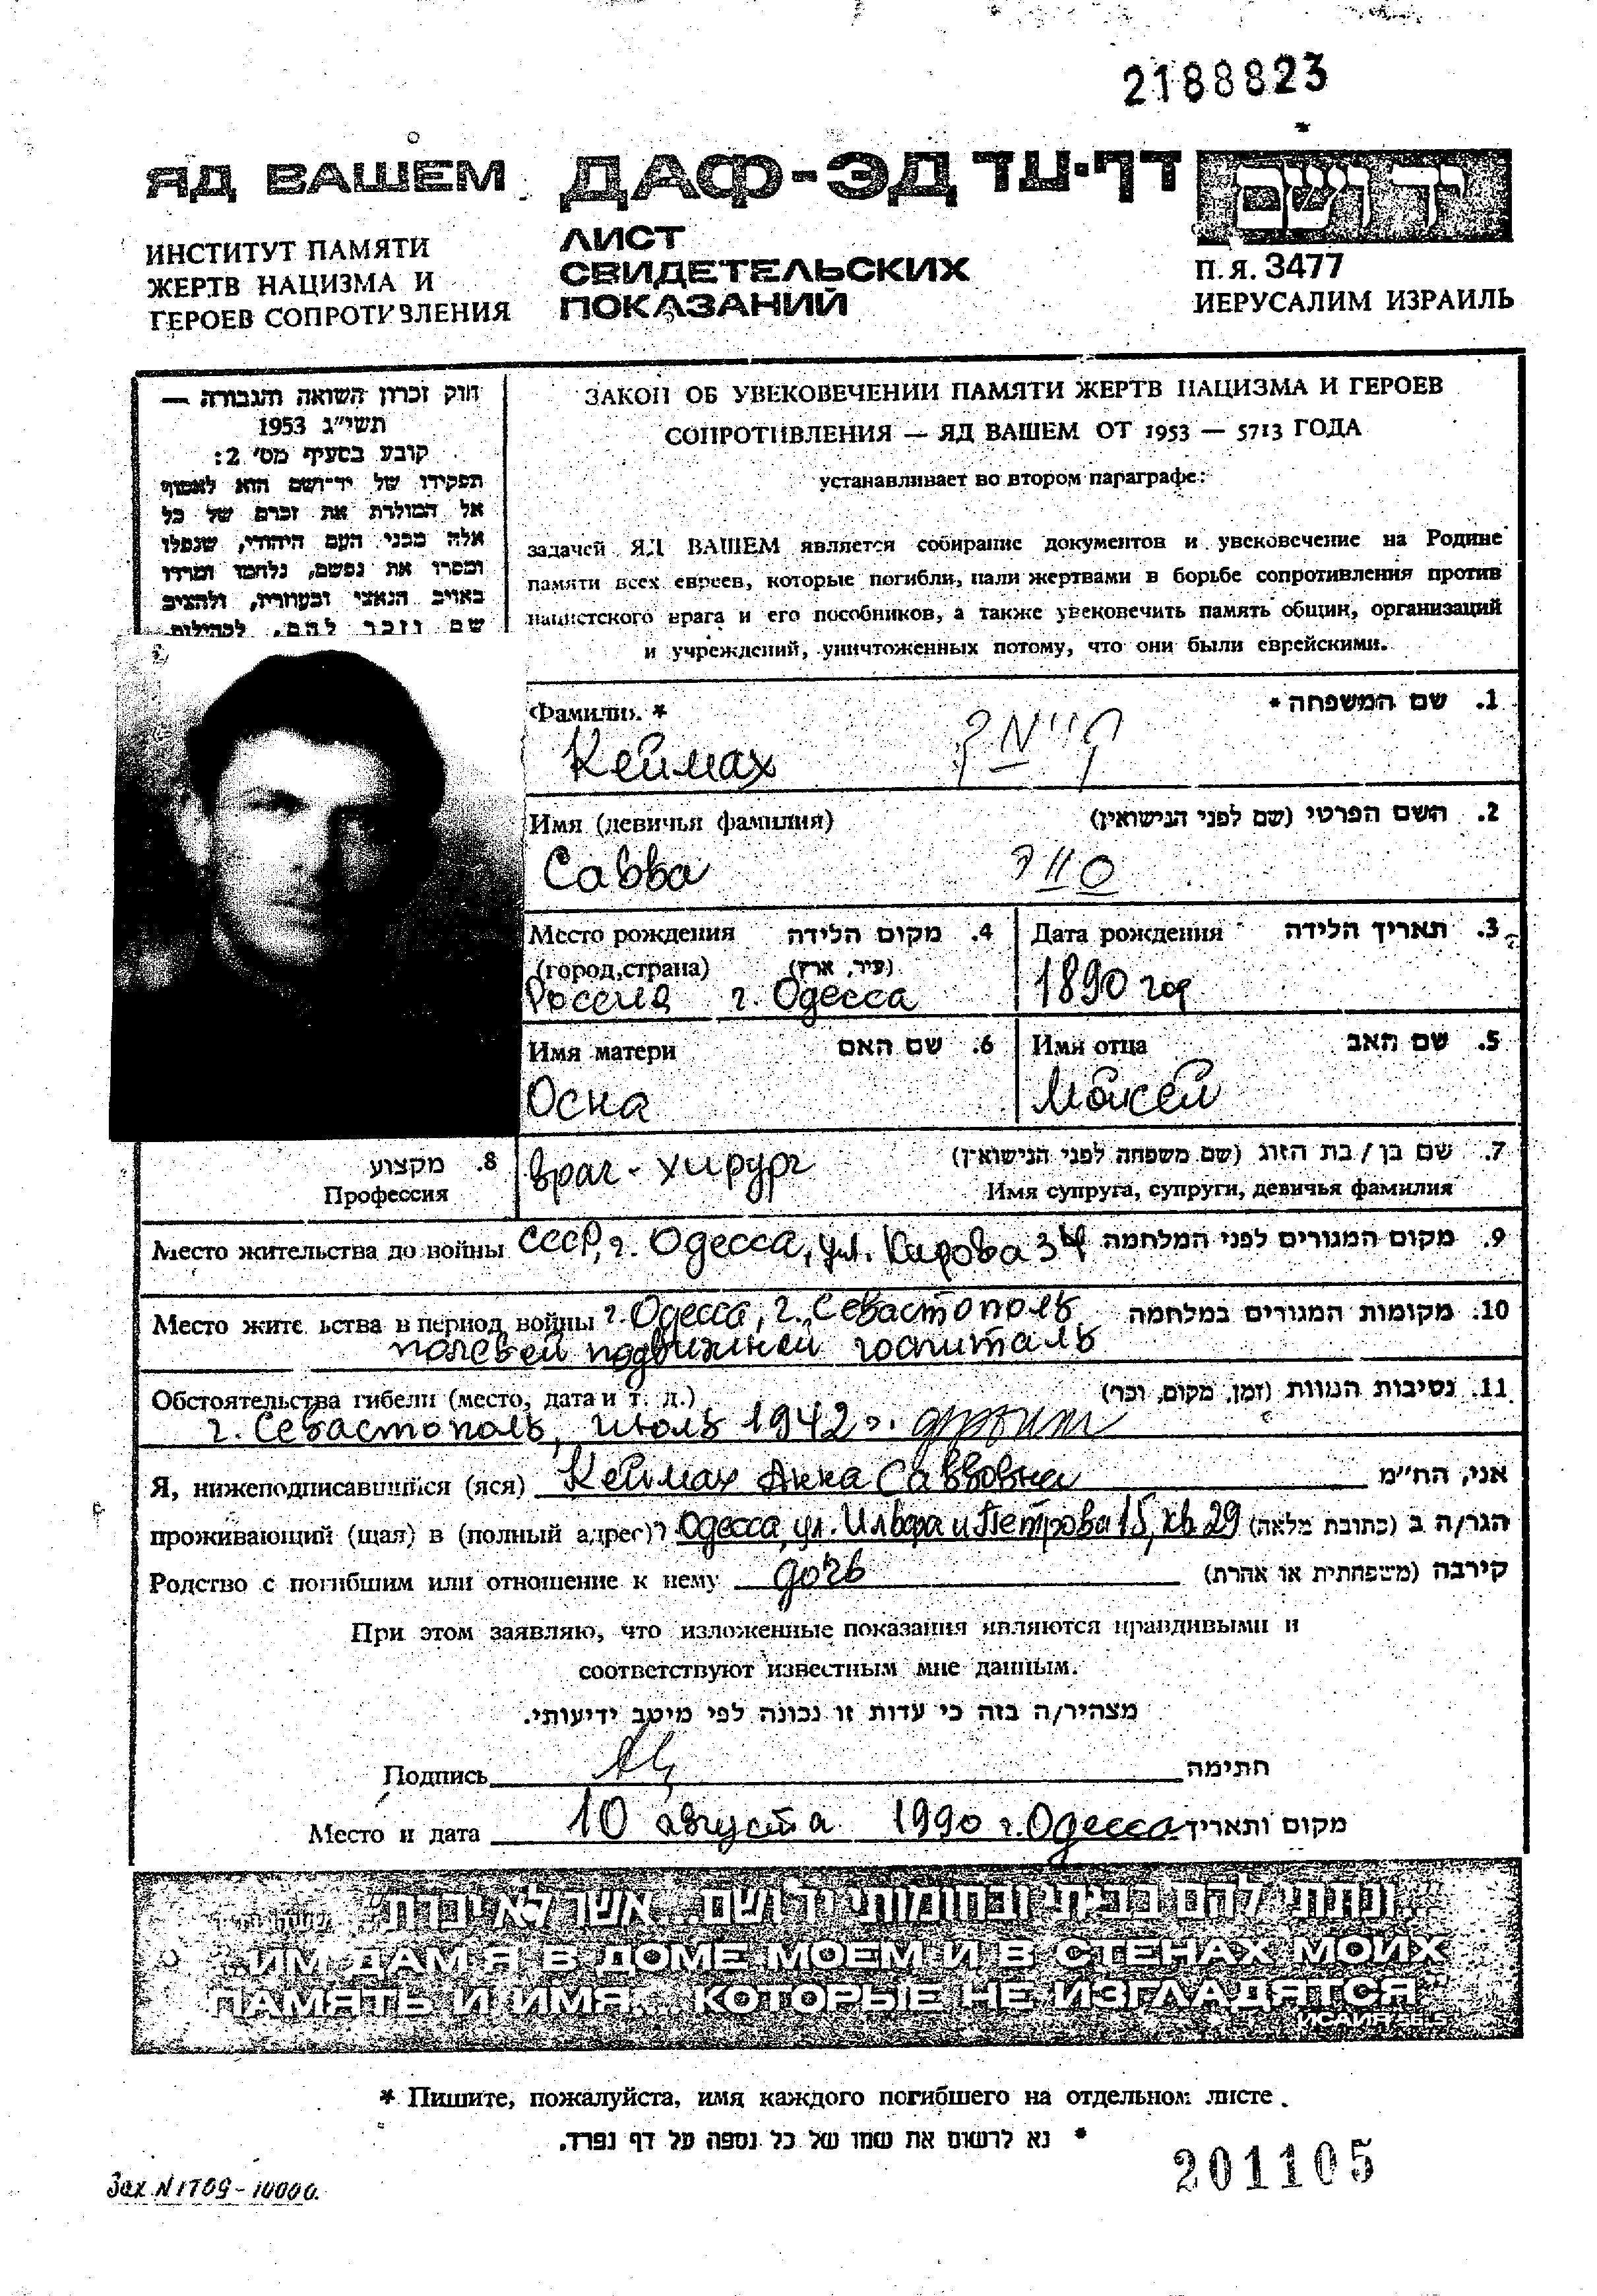 2188823
ЯД ВАШЕМ ДАФ-ЭД דף-עד יד ושם
ИНСТИТУТ ПАМЯТИ
ЖЕРТВ НАЦИЗМА И
ГЕРОЕВ СОПРОТИВЛЕНИЯ
ЛИСТ
СВИДЕТЕЛЬСКИХ
ПОКАЗАНИЙ
П.Я. 3477
ИЕРУСАЛИМ ИЗРАИЛЬ
חוק זכרון השואה והגבורה —
תשי"ג 1953
קובע בסעיף מס' 2:
תפקידו של יד-ושם הוא לאסוף
אל המולדת את זכרם של כל
אלה מבני העם היהודי, שנפלו
ומסרו את נפשם, נלחמו ומרדו
באויב הנאצי ובעוזריו, ולהציב
שם וזכר להם, לקהילות,
ЗАКОН ОБ УВЕКОВЕЧЕНИИ ПАМЯТИ ЖЕРТВ НАЦИЗМА И ГЕРОЕВ
СОПРОТИВЛЕНИЯ — ЯД ВАШЕМ ОТ 1953 — 5713 ГОДА
устанавливает во втором параграфе:
задачей ЯД ВАШЕМ является собирание документов и увековечение на Родине
памяти всех евреев, которые погибли, пали жертвами в борьбе сопротивления против
нацистского врага и его пособников, а также увековечить память общин, организаций
и учреждений, уничтоженных потому, что они были еврейскими.
Фамилия * 1. שם המשפחה *
Кеймах קיימך
Имя (девичья фамилия) 2. השם הפרטי (שם לפני הנישואין)
Савва
Место рождения 4. מקום הלידה
(город,страна) (עיר, ארץ)
Россия г. Одесса
Дата рождения 3. תאריך הלידה
1890 год
Имя матери 6. שם האם
Осна
Имя отца 5. שם האב
Мойсей
8. מקצוע
Профессия
врач-хирург
7. שם בן / בת הזוג (שם משפחה לפני הנישואין)
Имя супруга, супруги, девичья фамилия
Место жительства до войны СССР, г. Одесса, ул. Кирова 34 9. מקום המגורים לפני המלחמה
Место жительства в период войны г. Одесса, г. Севастополь 10. מקומות המגורים במלחמה
полевей подвижней госпиталь
Обстоятельства гибели (место, дата и т. д.) 11. נסיבות המוות (זמן, מקום, וכו')
г. Севастополь, июль 1942 г.
Я, нижеподписавшийся (яся) Кеймах Анна Саввовна אני, הח"מ
проживающий (щая) в (полный адрес) г Одесса, ул. Ильфа и Петрова 15, кв 29 הגר/ה ב (כתובת מלאה)
Родство с погибшим или отношение к нему дочь קירבה (משפחתית או אחרת)
При этом заявляю, что изложенные показания являются правдивыми и
соответствуют известным мне данным.
מצהיר/ה בזה כי עדות זו נכונה לפי מיטב ידיעותי.
Подпись חתימה
Место и дата 10 августа 1990 г. Одесса מקום ותאריך
"ונתתי להם בביתי ובחומותי יד ושם... אשר לא יכרת"
"...ИМ ДАМ Я В ДОМЕ МОЕМ И В СТЕНАХ МОИХ
ПАМЯТЬ И ИМЯ... КОТОРЫЕ НЕ ИЗГЛАДЯТСЯ"
ИСАИЯ 56.5
* Пишите, пожалуйста, имя каждого погибшего на отдельном листе.
* נא לרשום את שמו של כל נספה על דף נפרד.
201105
Зак. N 1709-10000.